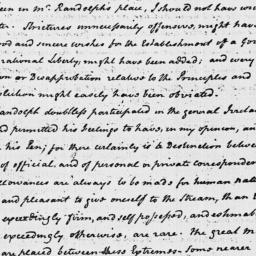 een in Mr. Randolph's place, I should not have wri
te. Strictures unnecessarily offensive, might have
ood and sincere wishes for the Establishment of a Gov
rational Liberty, might have been added; and every
on or Disapprobation relative to the Principles and
olution might easily have been obviated.
andolph doubtless participated in the general
d permitted his feelings to have, in my opinion, an
his Pen; for there certainly is a Distinction betwee
of official and of personal or private corresponden
llowances are always to be made for human natu
and pleasant to give oneself to the Stream, than
exceedingly firm, and self possessed, and estimab
exceedingly otherwise, are rare. The great m
are placed between these Extremes. Some nearer